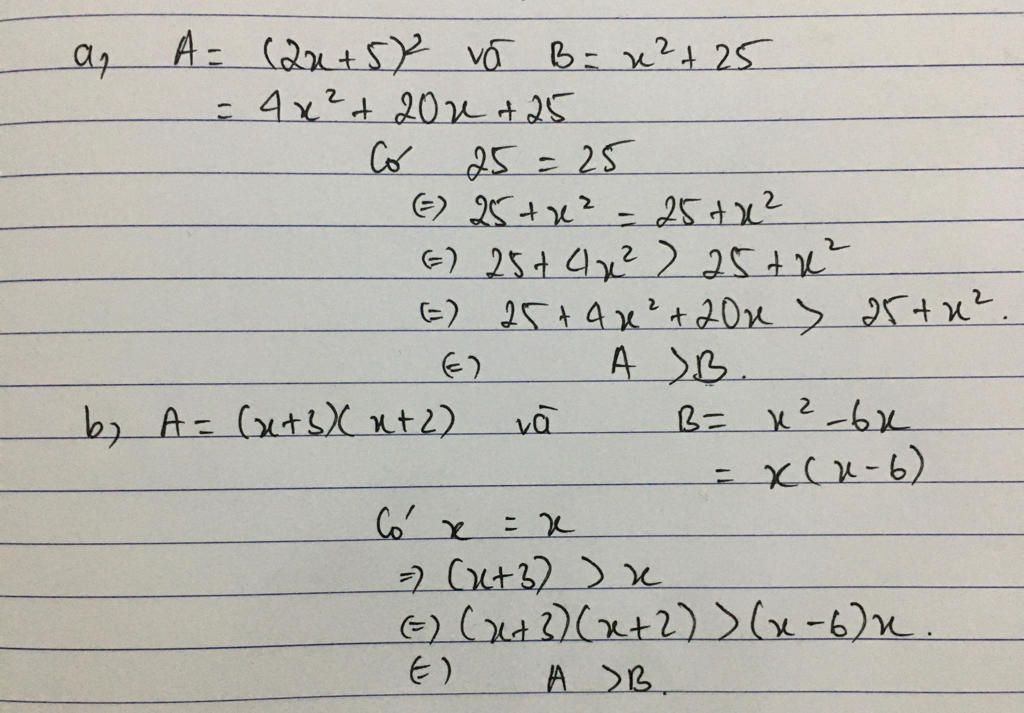 a, A = (2x+5)² và B = x² + 25
= 4x² + 20x + 25
Có 25 = 25
(=) 25 + x² = 25 + x²
(=) 25 + 4x² > 25 + x²
(=) 25 + 4x² + 20x > 25 + x².
(=) A > B.
b, A = (x+3)(x+2) và B = x² - 6x
= x(x-6)
Có x = x
=) (x+3) > x
(=) (x+3)(x+2) > (x-6)x.
(=) A > B.